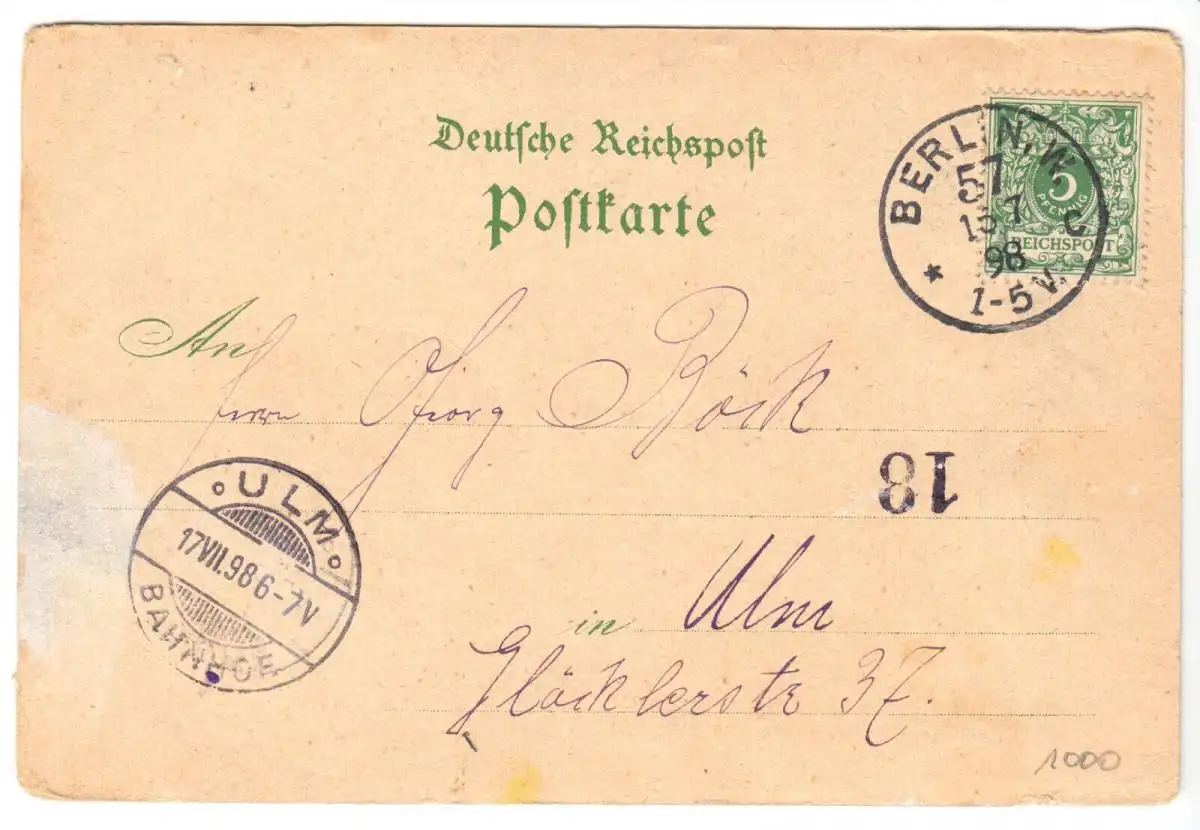 Deutsche Reichspost
Postkarte
BERLIN, W.
57
7
C
98
1-5 V.
5
PFENNIG
REICHSPOST
An
Herrn Georg Böck
18
ULM
17 VII. 98 6-7V
BAHNHOF
in Ulm
Glöcklerste 37.
1000